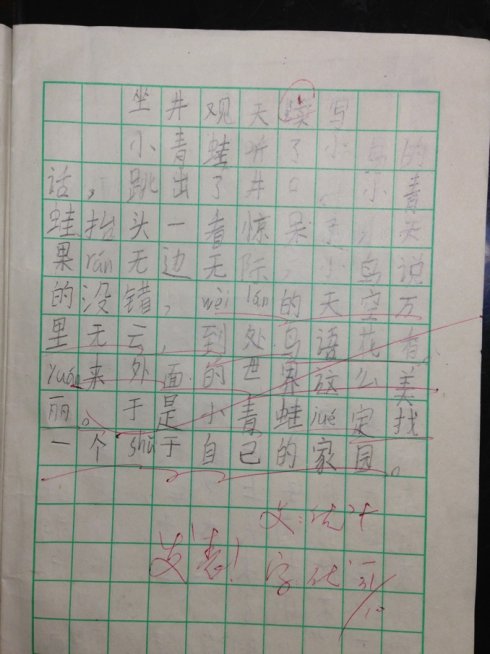 坐井观天续写
小青蛙听了小鸟的
话，跳出了井口，小青
蛙抬头一看惊呆了，天
果rán无边无际，小鸟说
的没错，wèi lán的天空万
里无云，到处鸟语花香，
yuán来外面的世界这么美
丽。于是小青蛙jué定找
一个shǔ于自己的家园。
文：优
发表！
字优